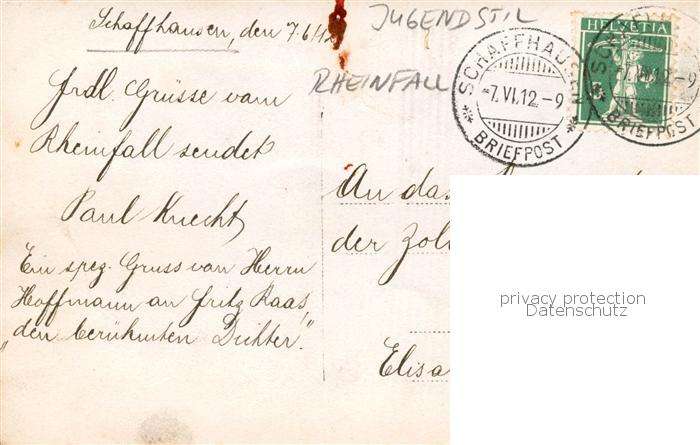 Schaffhausen, den 7.6.12
JUGENDSTIL
RHEINFALL
HELVETIA
SCHAFFHAUSEN
-7.VI.12.-9
BRIEFPOST
BRIEFPOST
Frdl. Grüsse vom
Rheinfall sendet
Paul Knecht
Ein spez. Gruss von Herrn
Hoffmann an Fritz Raas,
„den berühmten Dichter."
An das
der Zoll
Elisa
privacy protection
Datenschutz